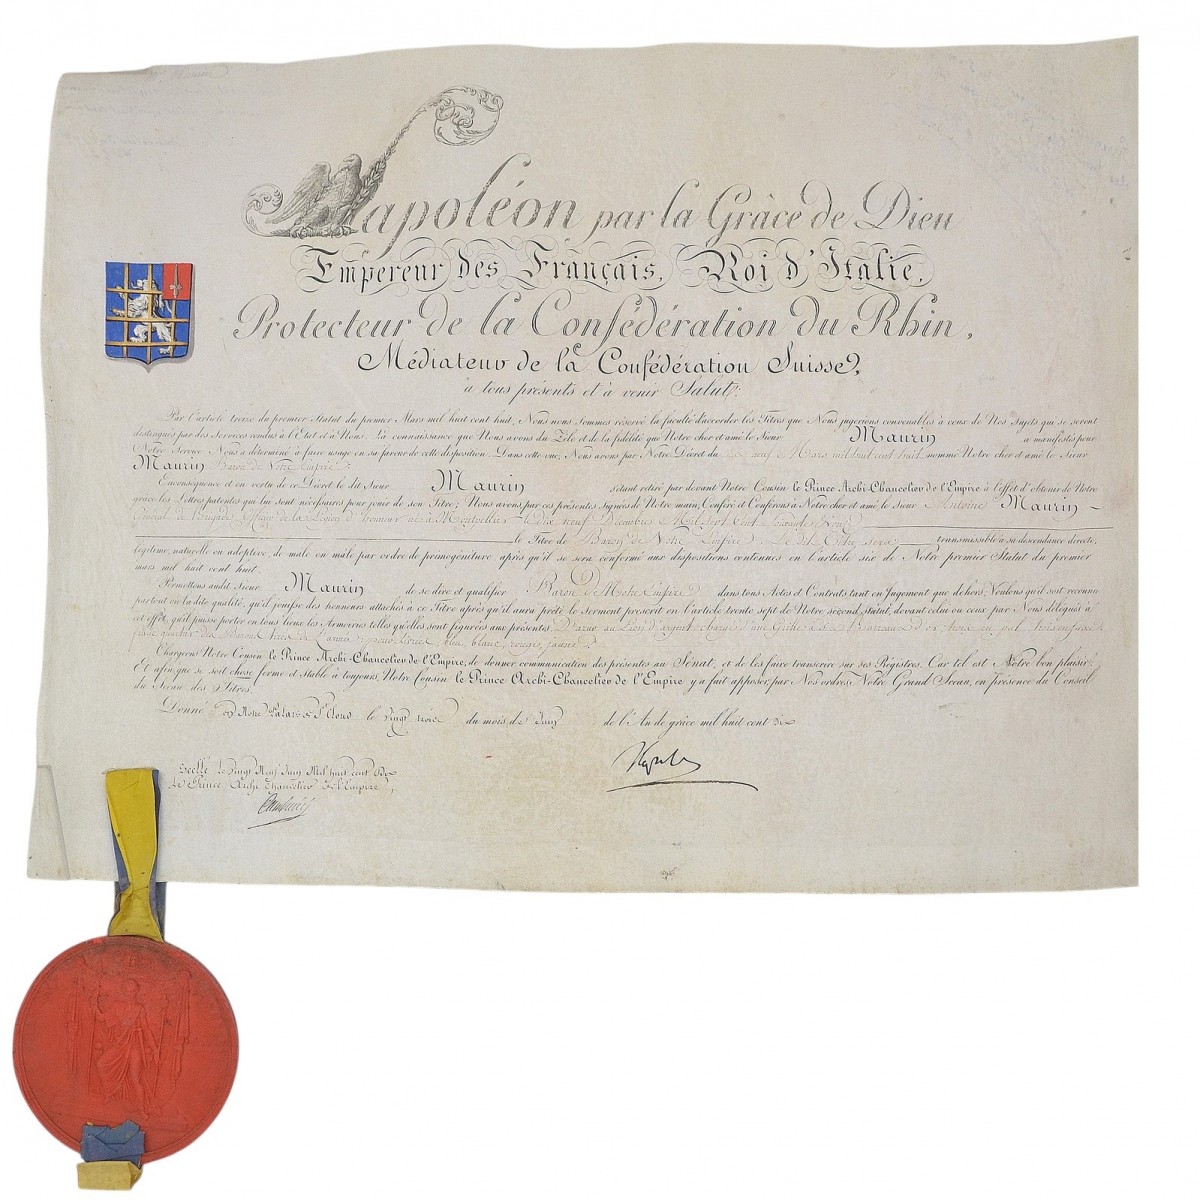 Napoléon par la Grâce de Dieu
Empereur des Français, Roi d'Italie,
Protecteur de la Confédération du Rhin,
Médiateur de la Confédération Suisse,
à tous présents et à venir Salut:
Par l'article treize du premier Statut du premier Mars mil huit cent huit, Nous nous sommes réservé la faculté d'accorder les Titres que Nous jugerions convenables à ceux de Nos Sujets qui se seront
distingués par des Services rendus à l'État et à Nous. La connaissance que Nous avons du Zèle et de la fidélité que Notre cher et amé le Sieur Maurin a manifestés pour
Notre Service Nous a déterminé à faire usage en sa faveur de cette disposition. Dans cette vue, Nous avons par Notre Décret du neuf Mars mil huit cent huit nommé Notre cher et amé le Sieur
Maurin Baron de Notre Empire;
En conséquence et en vertu de ce Décret le dit Sieur Maurin s'étant retiré par devant Notre Cousin le Prince Archi-Chancelier de l'Empire à l'effet d'obtenir de Notre
grâce les Lettres patentes qui lui sont nécessaires pour jouir de son Titre; Nous avons par ces présentes Signées de Notre main, Conféré & Conférons à Notre cher et amé le Sieur Antoine Maurin
Général de Brigade Officier de la Légion d'honneur né à Montpellier le dix neuf Décembre Mil sept cent
le Titre de Baron de Notre Empire. Le dit Titre sera transmissible à sa descendance directe,
légitime, naturelle ou adoptive, de mâle en mâle par ordre de primogéniture après qu'il se sera conformé aux dispositions contenues en l'article six de Notre premier Statut du premier
mars mil huit cent huit.
Permettons audit Sieur Maurin de se dire et qualifier Baron de Notre Empire dans tous Actes et Contrats tant en Jugement que dehors, Voulons qu'il soit reconnu
partout en la dite qualité, qu'il jouisse des honneurs attachés à ce Titre après qu'il aura prêté le serment prescrit en l'article trente sept de Notre second statut, devant celui ou ceux par Nous délégués à
cet effet, qu'il puisse porter en tous lieux les Armoiries telles qu'elles sont figurées aux présentes D'azur au Lion d'argent chargé d'une Grille
franc quartier des Barons tirés de l'armée; pour Livrée bleu, blanc, rouge, jaune.
Chargeons Notre Cousin le Prince Archi-Chancelier de l'Empire, de donner communication des présentes au Sénat, et de les faire transcrire sur ses Régistres. Car tel est Notre bon plaisir;
Et afin que ce soit chose ferme et stable à toujours, Notre Cousin le Prince Archi-Chancelier de l'Empire y a fait apposer, par Nos ordres, Notre Grand Sceau, en présence du Conseil
du Sceau des Titres.
Donné en Notre Palais de St Cloud le vingt trois du mois de Juin de l'An de grâce mil huit cent dix
Scellé le vingt Neuf Juin Mil huit cent Dix
Le Prince Archi Chancelier de l'Empire,